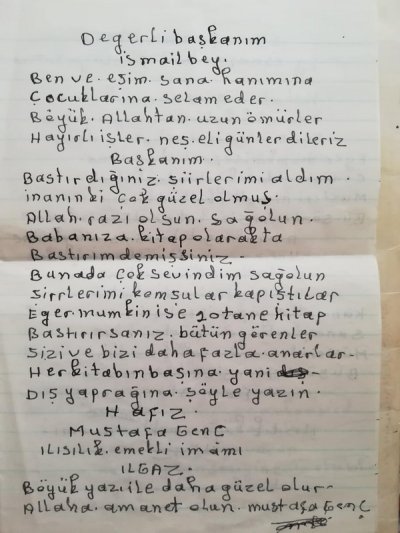 Değerli başkanım
ismail bey.
Ben ve. eşim. sana. hanımına
Çocuklarına. selam eder.
Böyük. Allahtan. uzun ömürler
Hayırlı işler. neş.eli günler dileriz
Başkanım.
Bastırdığınız. şiirlerimi aldım.
inanın ki çok güzel olmuş.
Allah. razı olsun. sağolun.
Babanıza. kitap olarakta
Bastırım demişsiniz.
Bunada çok sevindim sağolun
şirrlerimi komşular kapıştılar
Eger mumkin ise 20 tane kitap
Bastırırsanız. bütün görenler
sizi ve bizi daha fazla. anarlar-
Her kitabın başına. yani
Dış yaprağına. şöyle yazın.
Hafız.
Mustafa Genç
ılısılık. emekli imamı
ILGAZ.
Böyük yazı ile daha güzel olur-
Allaha. amanet olun. mustafa Genç